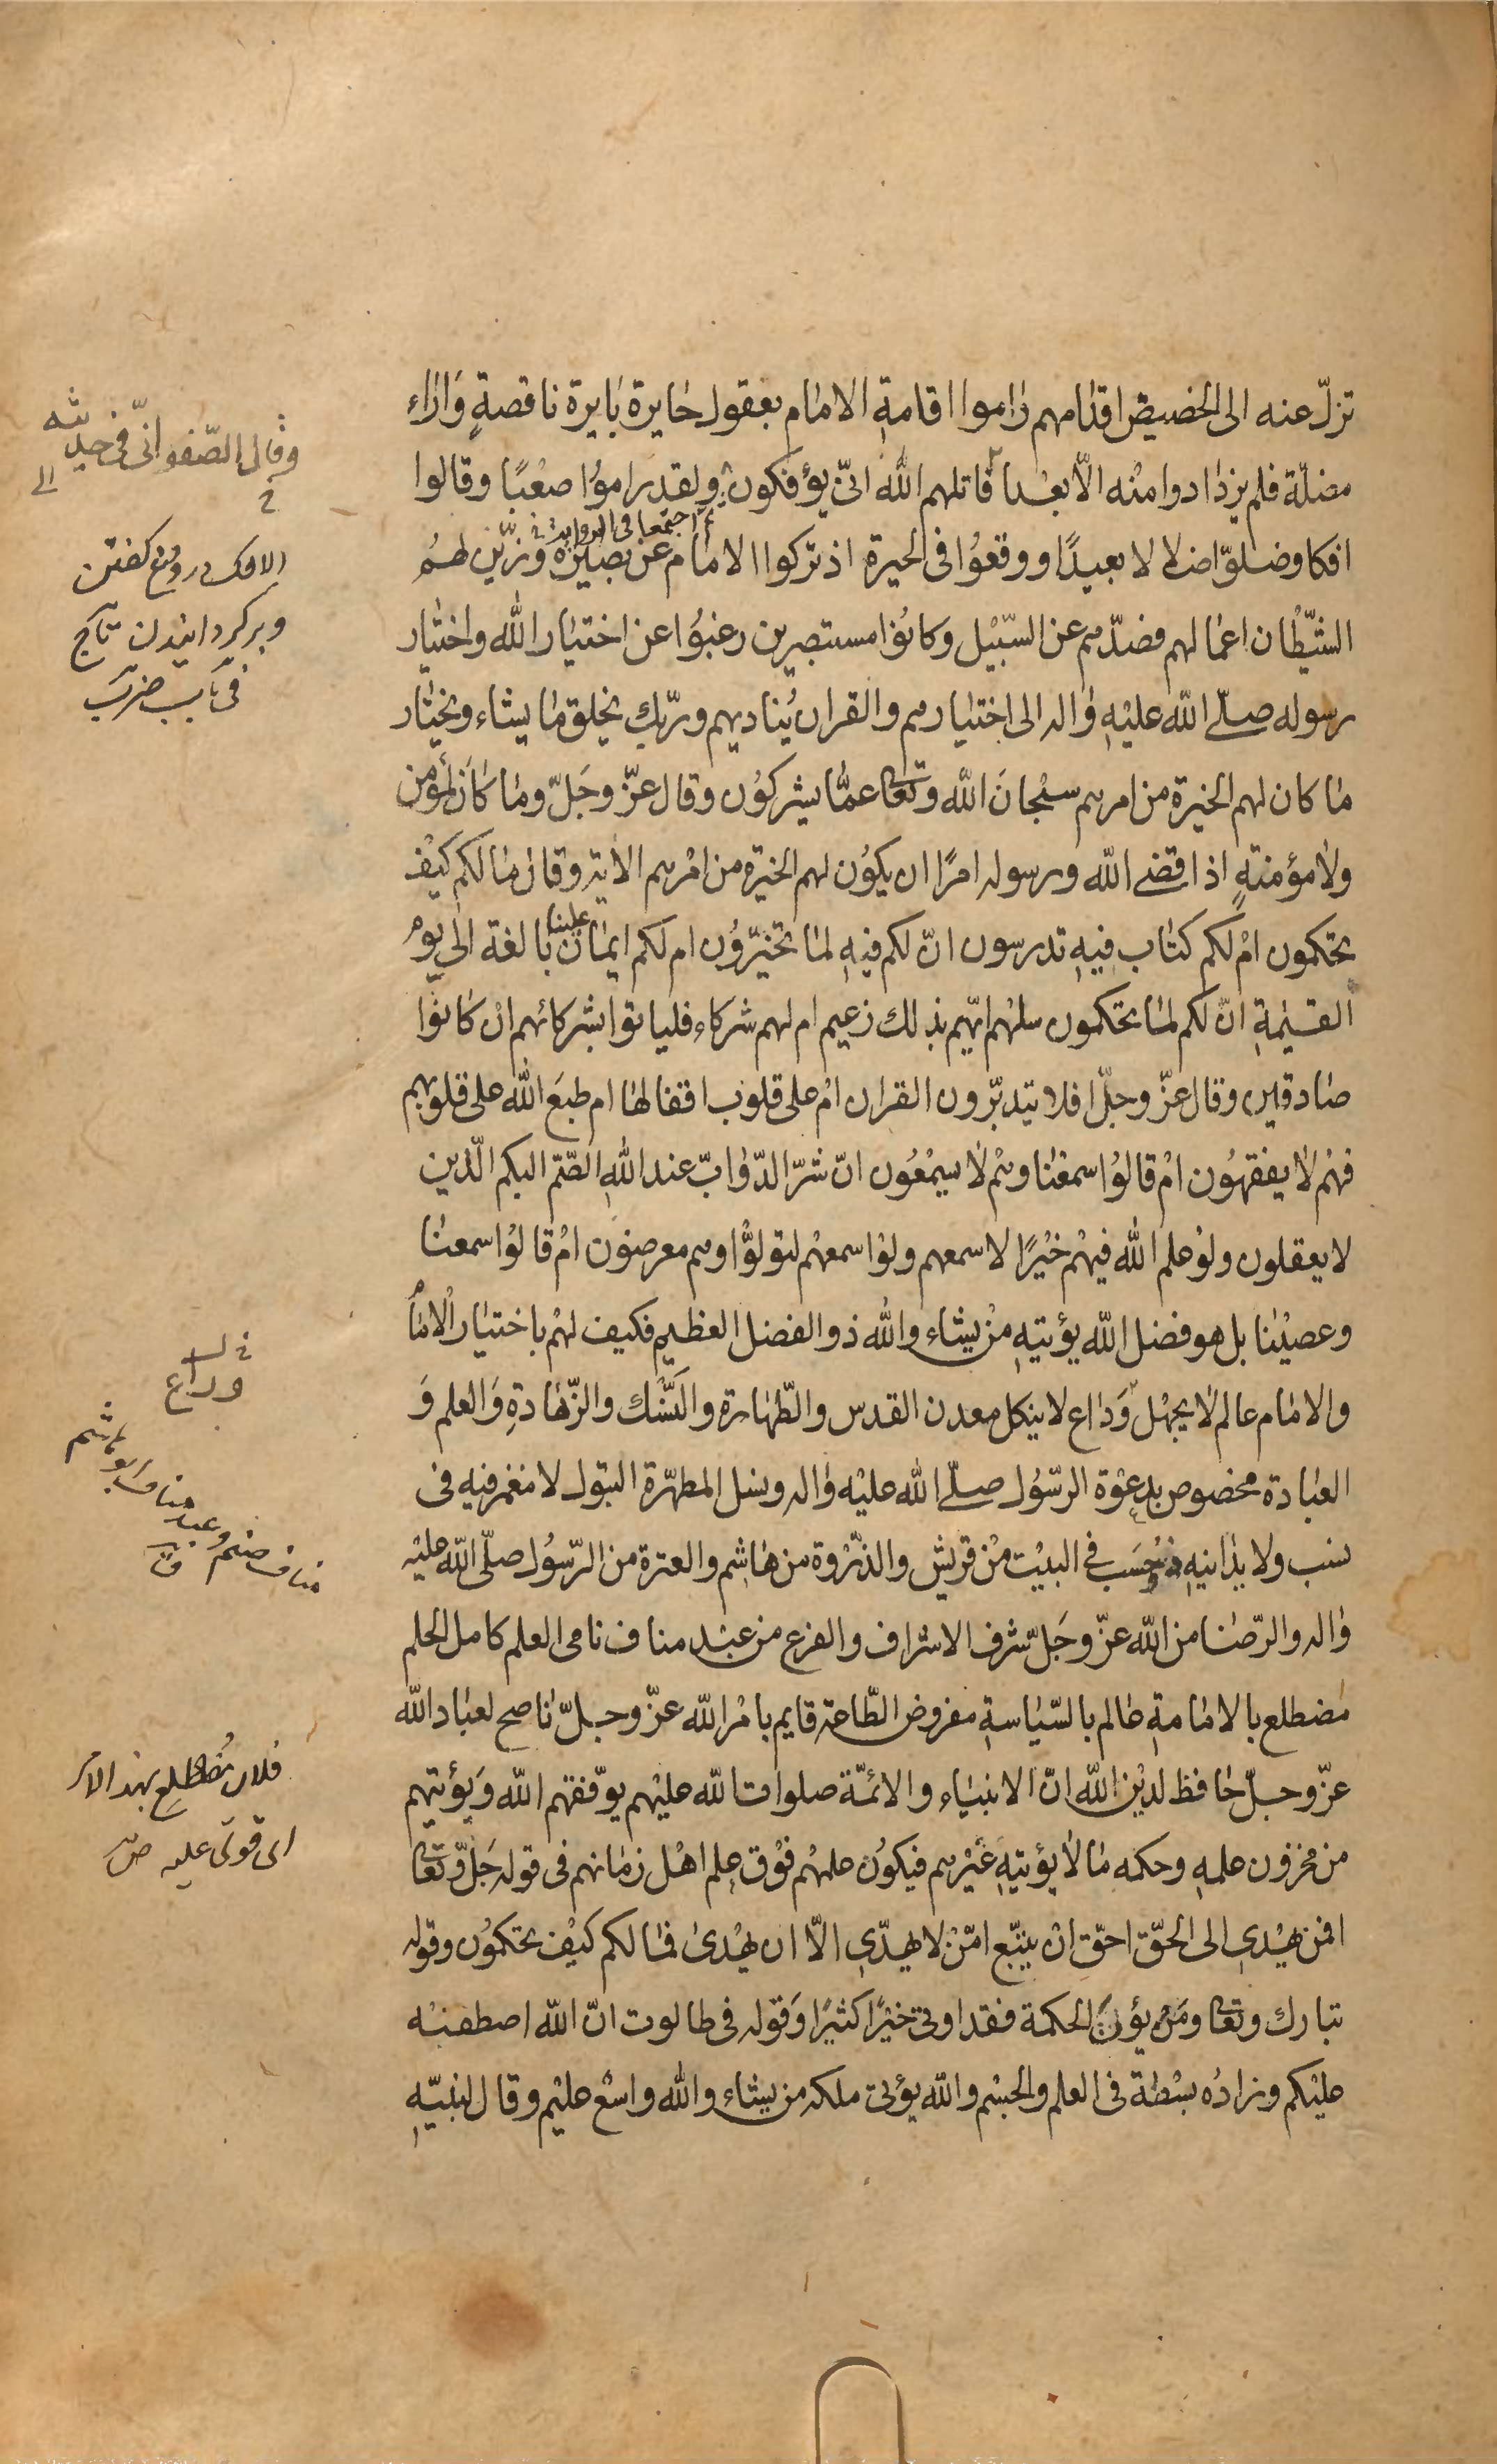 تزلّ عنه الى الحضيض اقدامهم راموا اقامة الامام بعقول حايرة بايرة ناقصةٍ وَاراء
مضلّة فلم يزدادوا منه الّا بعدا قاتلهم الله انّى يؤفكون ولقد راموُا صعْبًا وقالوا
ثم اجتمعا فى الرواية
افكا وضلوّا ضلالا بعيدًا ووقعوُا فى الحيرة اذ تركوا الامام عن بصيرة وزيّن لهمُ
الشيّطان اعمالهم فصدّهم عن السّبيْل وكانوُا مستبصرين رغبوُا عن اختيار الله واختيار
رسوله صلّى الله عليْهِ واله الى اختيارهم والقران يُناديهم وربّك يخلق ما يشاء ويختار
ما كان لهم الخيرة من امرهم سبْحانَ الله وتعالى عمّا يشركوُن وقال عزّ وجَلّ وما كانَ لمؤمن
ولا مؤمنةٍ اذا قضى الله ورسوله امرًا ان يكوُن لهم الخيرة من امْرهم الاية وقال ما لكم كيْف
تحكمون امْ لكم كتاب فيهِ تدرسون انّ لكم فيهِ لما تخيّروُن ام لكم ايمان علينا بالغة الى يوْم
القيٰمةِ انّ لكم لما تحكمون سلهْم ايّهم بذلك زعيم ام لهم شركاء فلياتوا بشركائهم انْ كانوُا
صادقين وقال عزّ وجلّ افلا يتدبّرون القران امْ على قلوب اقفالها ام طبعَ الله على قلوبهم
فهمْ لا يفقهوُن امْ قالوُا سمعْنا وهْم لا يسمْعُون انّ شرّ الدّوابّ عند اللهِ الصّمّ البكم الّذين
لا يعقلون ولوْ علم الله فيهْم خيْرًا لاسمعهم ولوْ اسمعهْم لتولّوْا وهم معرضون امْ قالوُا سمعنا
وعصيْنا بل هو فضل الله يؤتيهِ منْ يشاء والله ذو الفضل العظيم فكيف لهمْ باختيار الْامام
والامام عالم لا يجهْل وَراع لا ينكل معدن القدس والطّهارة والنّسْك والزّهادةِ وَالعلم وَ
العبادة مخصوص بدعوْة الرّسوُل صلّى الله عليْه واله ونسل المطهّرة البتول لا مغمز فيه فى
نسب ولا يدانيهِ ذو حَسَب فى البيْت منْ قريش والذّرْوة من هاشِم والعترة من الرّسوُل صلّى الله عليْه
واله والرّضا من الله عزّ وجَلّ شرف الاشراف والفرع من عبْد مناف نامى العلم كامل الحلم
مضطلع بالامامةِ عالم بالسّياسةِ مفروض الطّاعة قايم بامْر الله عزّ وجلّ ناصح لعباد الله
عزّ وجلّ حافظ لديْن الله انّ الانبياء والائمّة صلوات الله عليْهم يوّفقهم الله وَيؤتيهم
من مخزون علمهِ وحكمه ما لا يؤتيهِ غيْرهم فيكوُن علمهْم فوْق علم اهْل زمانهم فى قوله جَلّ وتعالى
افمن يهْدى الى الحّق احقّ انْ يتبّع امّنْ لا يهدّى الّا ان يهْدىٰ فما لكم كيْف تحكموُن وقوله
تبارك وتعالى ومَن يؤتَ الحكمة فقد اوتى خيْرًا كثيْرًا وَقوله فى طالوت انّ الله اصطفيٰه
عليْكم وزادُه بسْطة فى العلم والجسْم والله يؤتى ملكه من يشاء والله واسْع عليْم وقال لنبيّهِ
وقال الصّفوانىّ فى حديثه
الافك دروغ كفتن
وبركردانيدن تاج
فى باب ضرب
وراع
مناف صنم وعبد مناف ابو هاشم
فلان مُضْطلِع بهذا الامر
اى قوىّ عليه ص